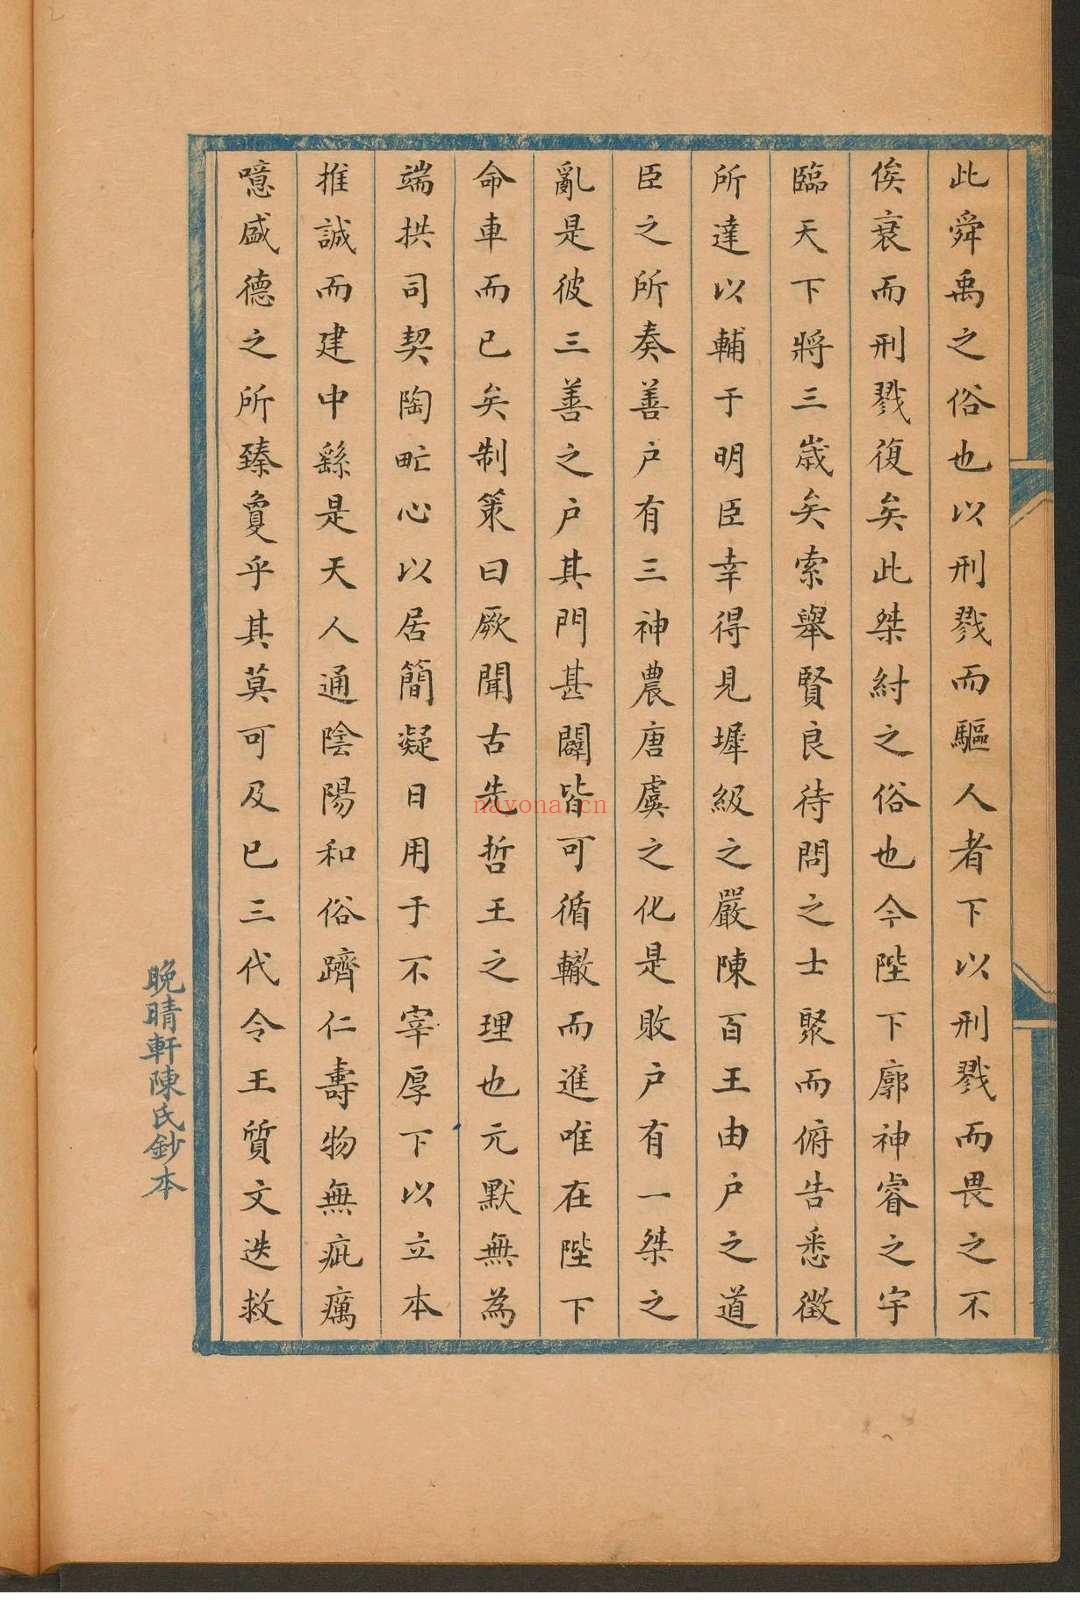 此舜禹之俗也以刑戮而驅人者下以刑戮而畏之不
俟衰而刑戮復矣此桀紂之俗也今陛下廓神睿之宇
臨天下將三歲矣索舉賢良待問之士聚而俯告悉徵
所達以輔于明臣幸得見墀級之嚴陳百王由户之道
臣之所奏善户有三神農唐虞之化是敗户有一桀之
亂是彼三善之户其門甚闢皆可循轍而進唯在陛下
命車而已矣制策曰厥聞古先哲王之理也元默無為
端拱司契陶甿心以居簡凝日用于不宰厚下以立本
推誠而建中繇是天人通陰陽和俗躋仁壽物無疵癘
噫盛德之所臻夐乎其莫可及已三代令王質文迭救
晚晴軒陳氏鈔本
nayona.cn